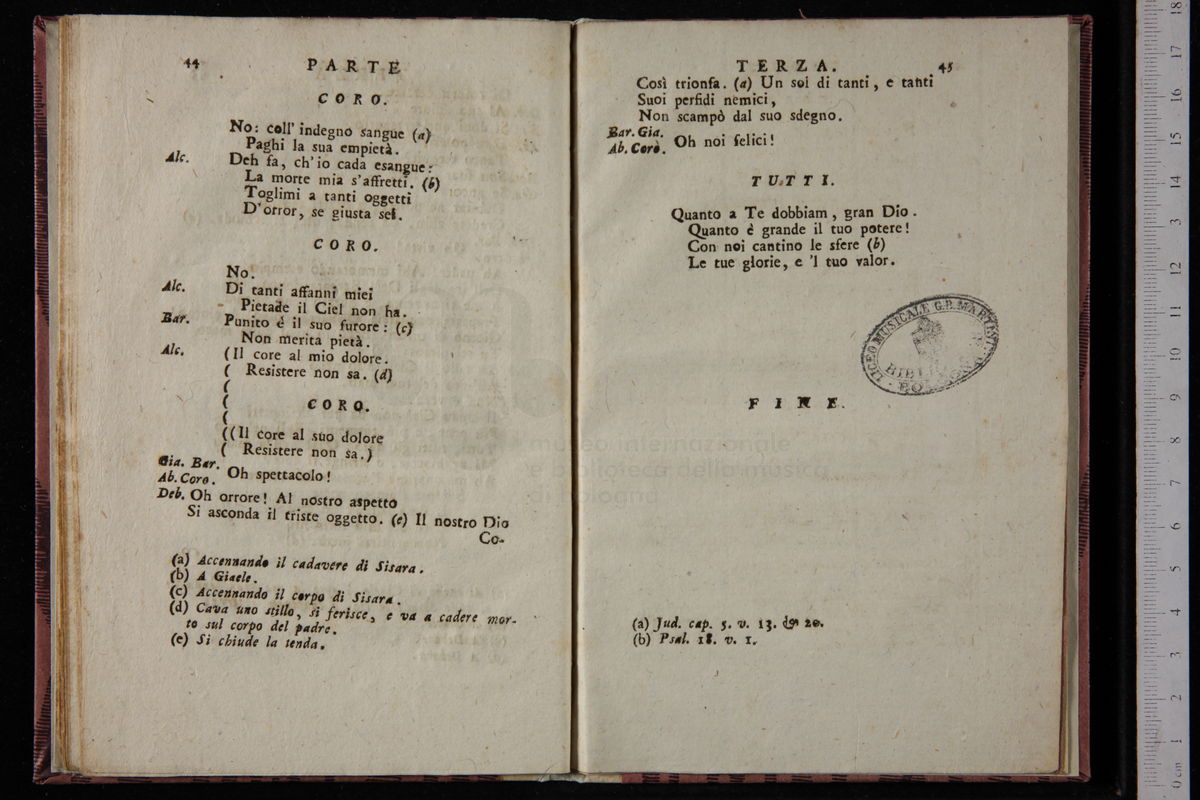 44 PARTE
CORO.
No: coll' indegno sangue (a)
Paghi la sua empietà.
Alc. Deh fa, ch'io cada esangue:
La morte mia s'affretti. (b)
Toglimi a tanti oggetti
D'orror, se giusta sei.
CORO.
No.
Alc. Di tanti affanni miei
Pietade il Ciel non ha.
Bar. Punito è il suo furore: (c)
Non merita pietà.
Alc. (Il core al mio dolore.
( Resistere non sa. (d)
(
( CORO.
(
((Il core al suo dolore
( Resistere non sa.)
Gia. Bar.
Ab. Coro. Oh spettacolo!
Deb. Oh orrore! Al nostro aspetto
Si asconda il triste oggetto. (e) Il nostro Dio
Co-
(a) Accennando il cadavere di Sisara.
(b) A Giaele.
(c) Accennando il corpo di Sisara.
(d) Cava uno stillo, si ferisce, e va a cadere mor-
to sul corpo del padre.
(e) Si chiude la tenda.
TERZA. 45
Così trionfa. (a) Un sol di tanti, e tanti
Suoi perfidi nemici,
Non scampò dal suo sdegno.
Bar. Gia.
Ab. Coro. Oh noi felici!
TUTTI.
Quanto a Te dobbiam, gran Dio.
Quanto è grande il tuo potere!
Con noi cantino le sfere (b)
Le tue glorie, e 'l tuo valor.
LICEO MUSICALE G.B. MARTINI
FINE.
museo internazionale
e biblioteca della musica
di bologna
(a) Jud. cap. 5. v. 13. & 20.
(b) Psal. 18. v. 1.
0 cm 1 2 3 4 5 6 7 8 9 10 11 12 13 14 15 16 17 18